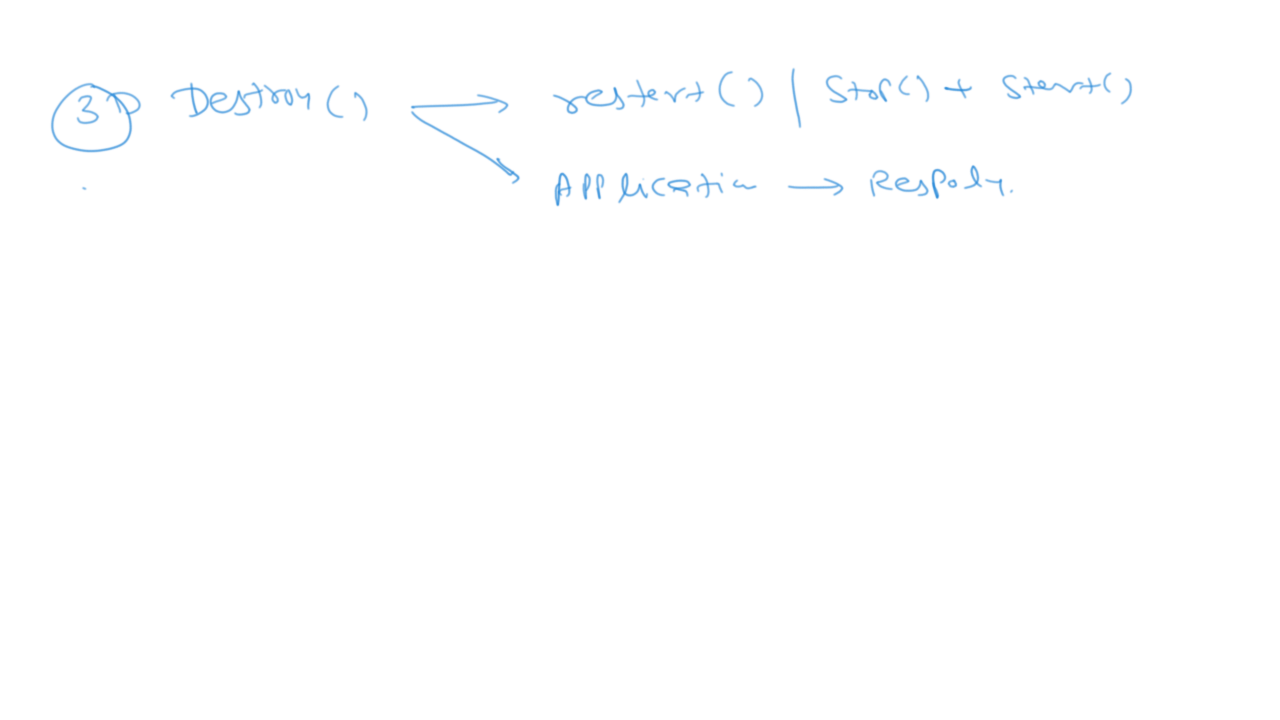 3 Destroy() → restart() | Stop() + Start()
Application → Respoly.